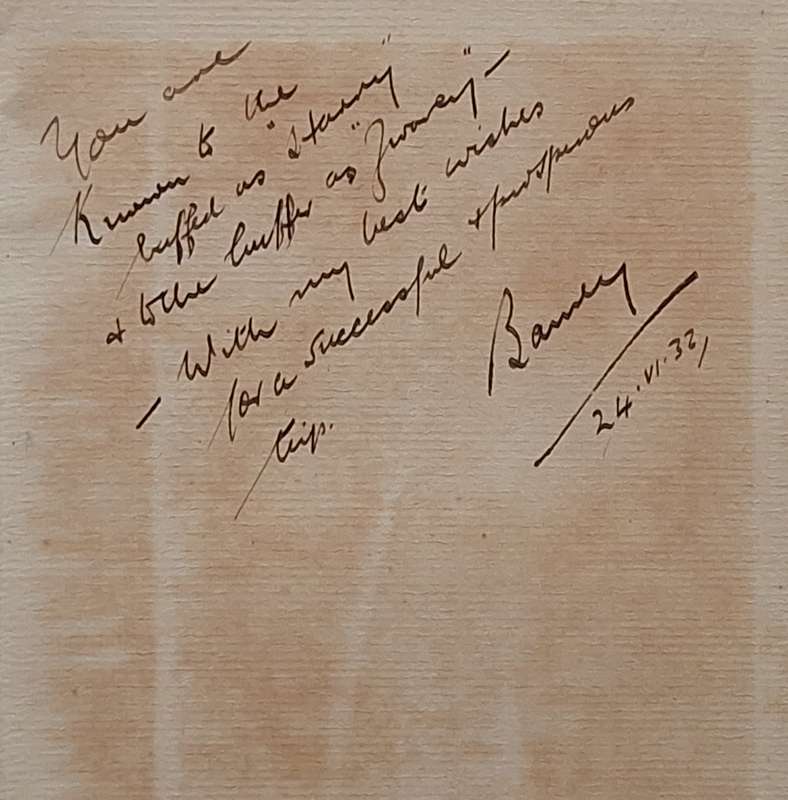 You are
Known to the
buffed as "Harry"
& to the buffer as
— With my best wishes
for a successful & prosperous
trip.
Barney
24.VI.32,